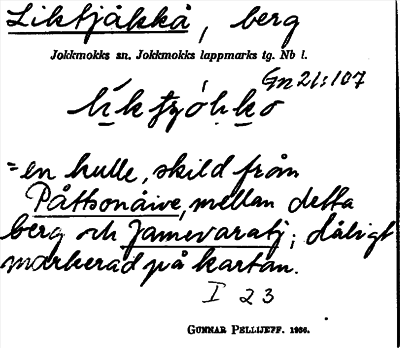 Liktjåkkå, berg
Jokkmokks sn. Jokkmokks lappmarks tg. Nb l.
Gn 21:107
= en kulle, skild från
Påttsonåive, mellan detta
berg och Jamevaratj; dåligt
markerad på kartan.
I 23
GUNNAR PELLIJEFF. 1966.